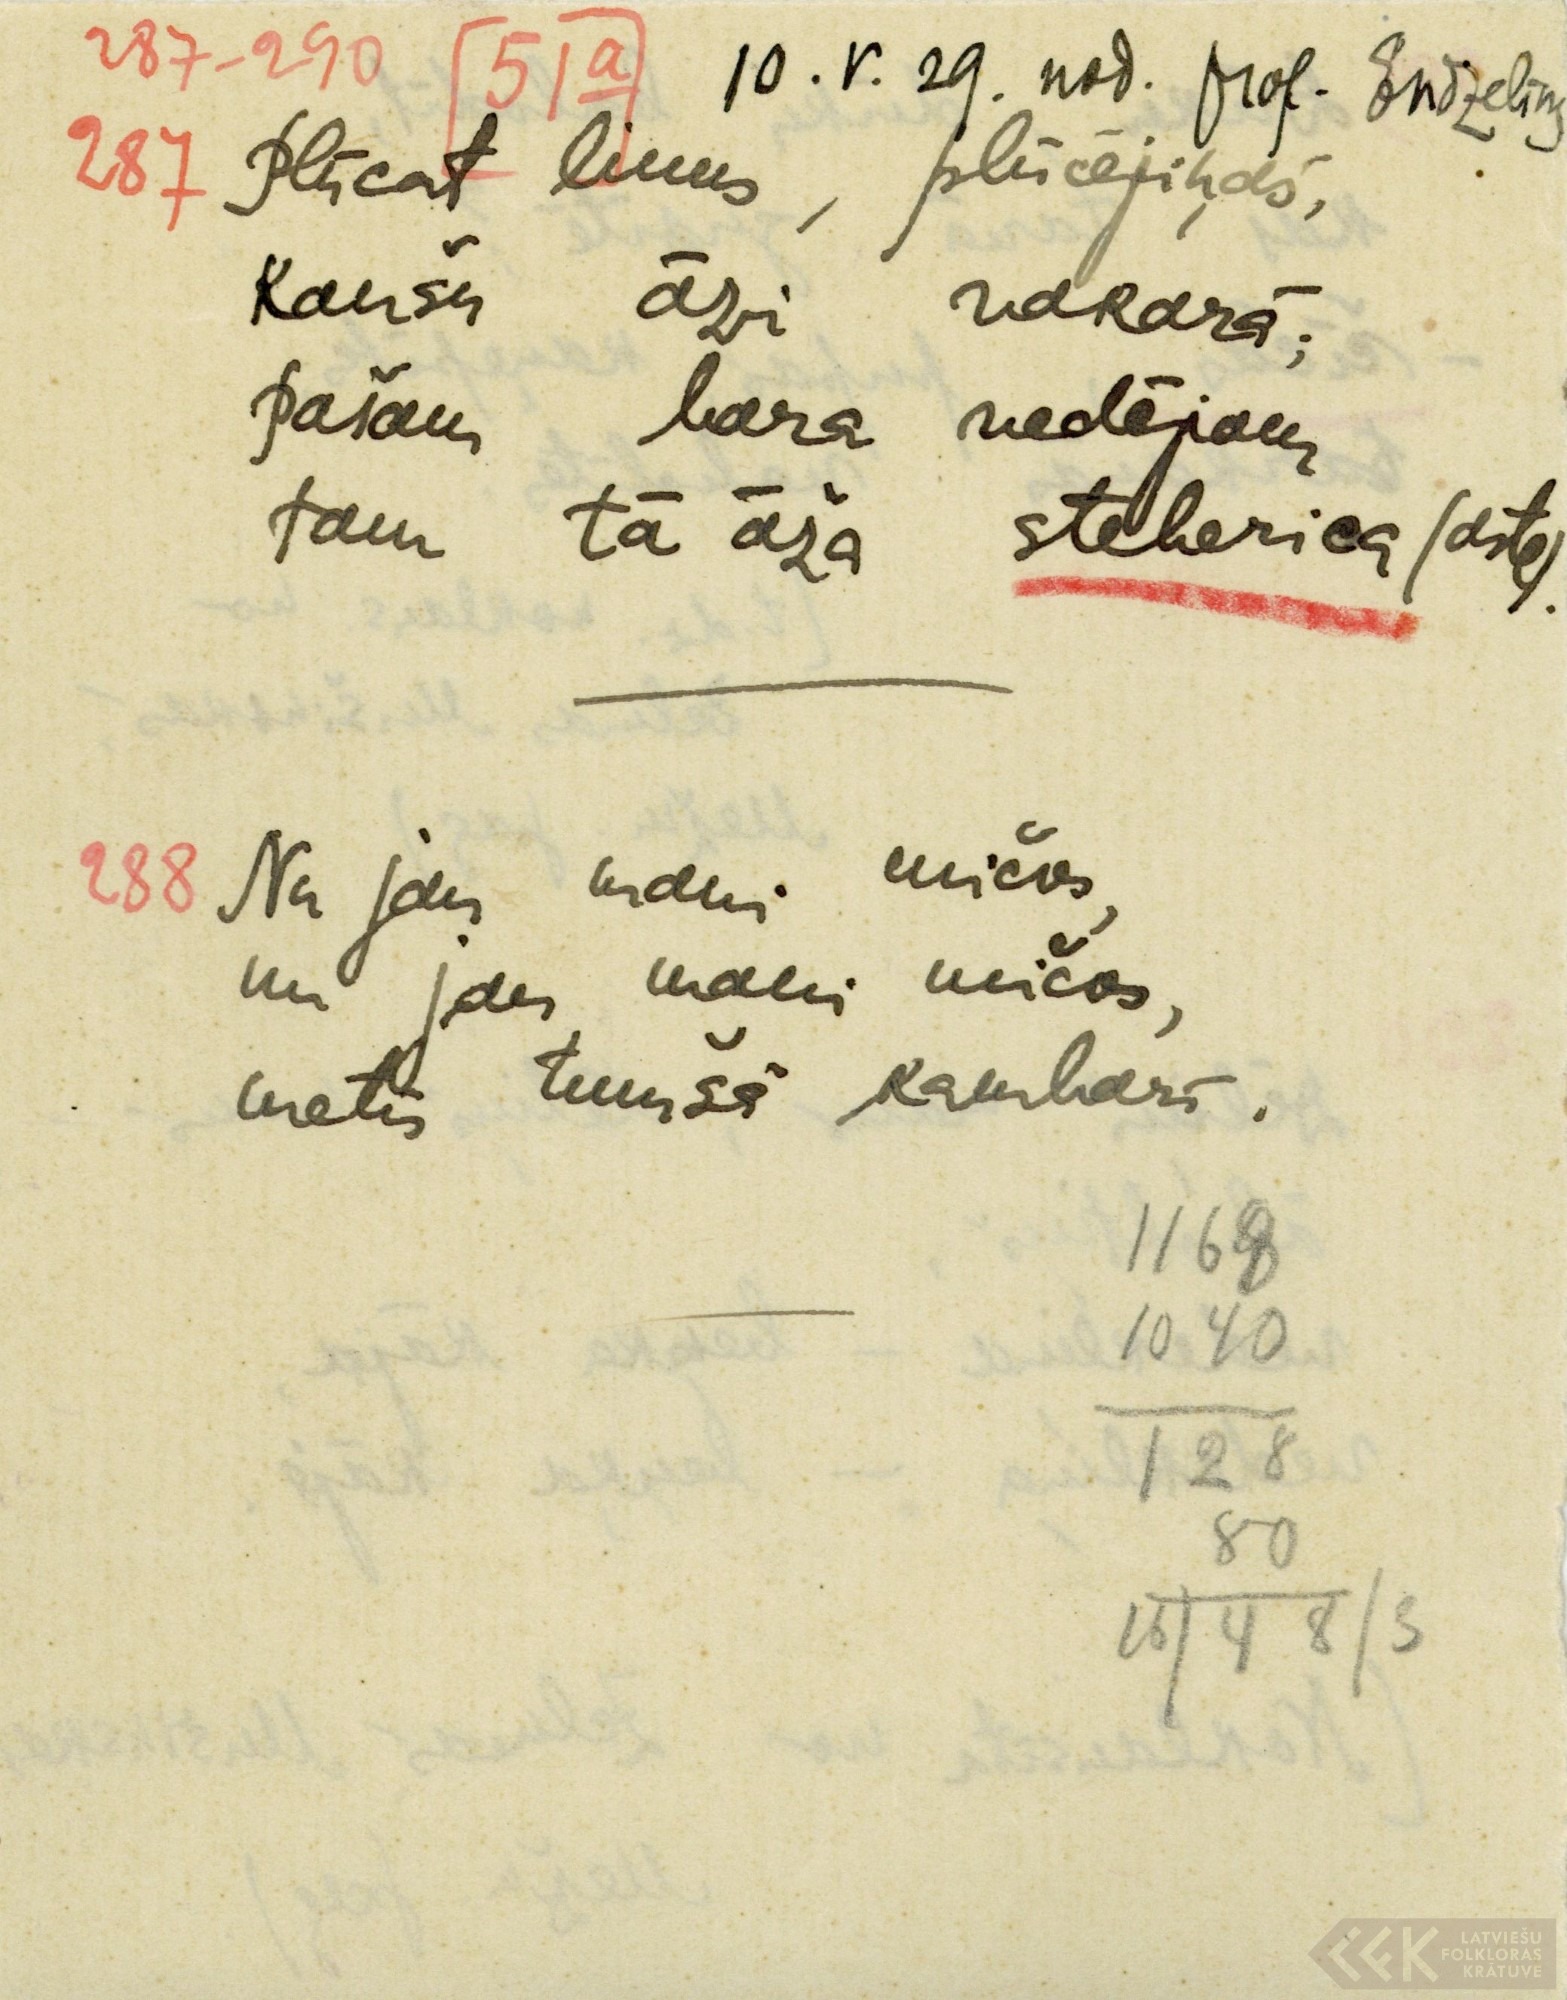 287-290 [51a] 10. V. 29. nod. prof. Endzelīns
287 Plūcat linus, plūcējiņas,
Kaušu āzi vakarā;
Pašam bara vedējam
tam tā āža stebericа (aste).
288 Nu jau mani mičos,
nu jau mani mičos,
metīs tumšā kambarī.
1168
1040
128
80
16) 48 /3
LATVIEŠU
FOLKLORAS
KRĀTUVE